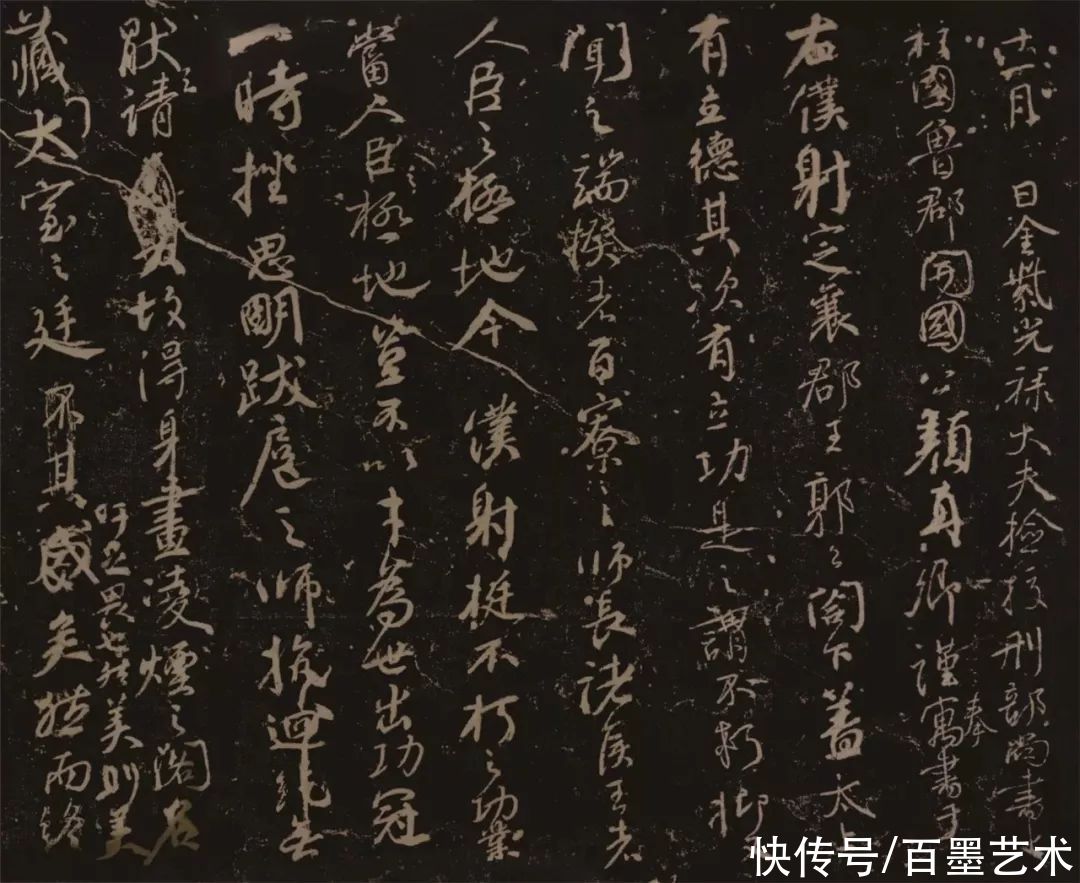 十一月 日金紫光祿大夫檢校刑部尚書上
柱國魯郡開國公顏真卿謹奉寓書于
右僕射定襄郡王郭公閤下蓋太上
有立德其次有立功是之謂不朽抑又
聞之端揆者百寮之師長諸侯王者
人臣之極地今僕射挺不朽之功業
當人臣極地豈不以才為世出功冠
一時挫思明跋扈之師抗迴紇無
猒之請故得身畫凌煙之閣名
藏太室之廷
吁足畏也然美則美
矣然而終
快传号/百墨艺术